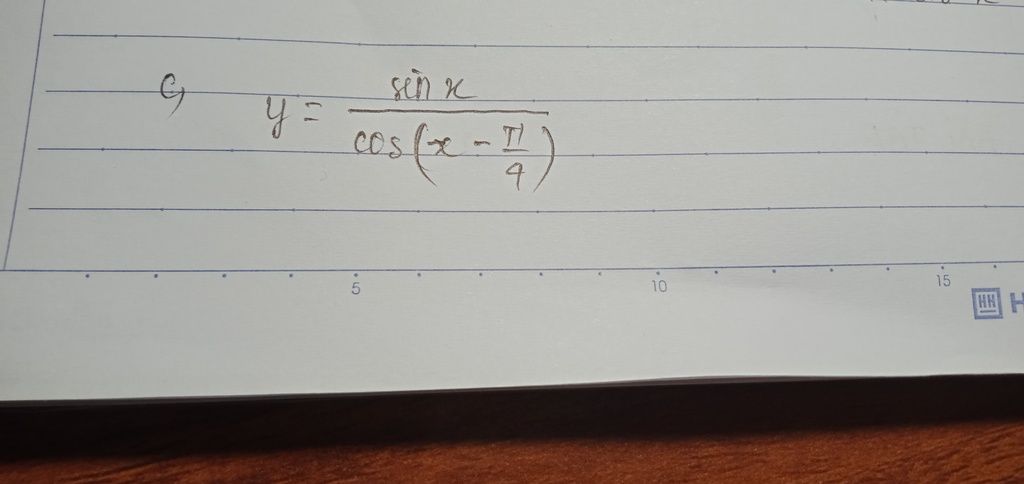 c, y = sin x / cos(x - π/4)
5 10 15
HK H